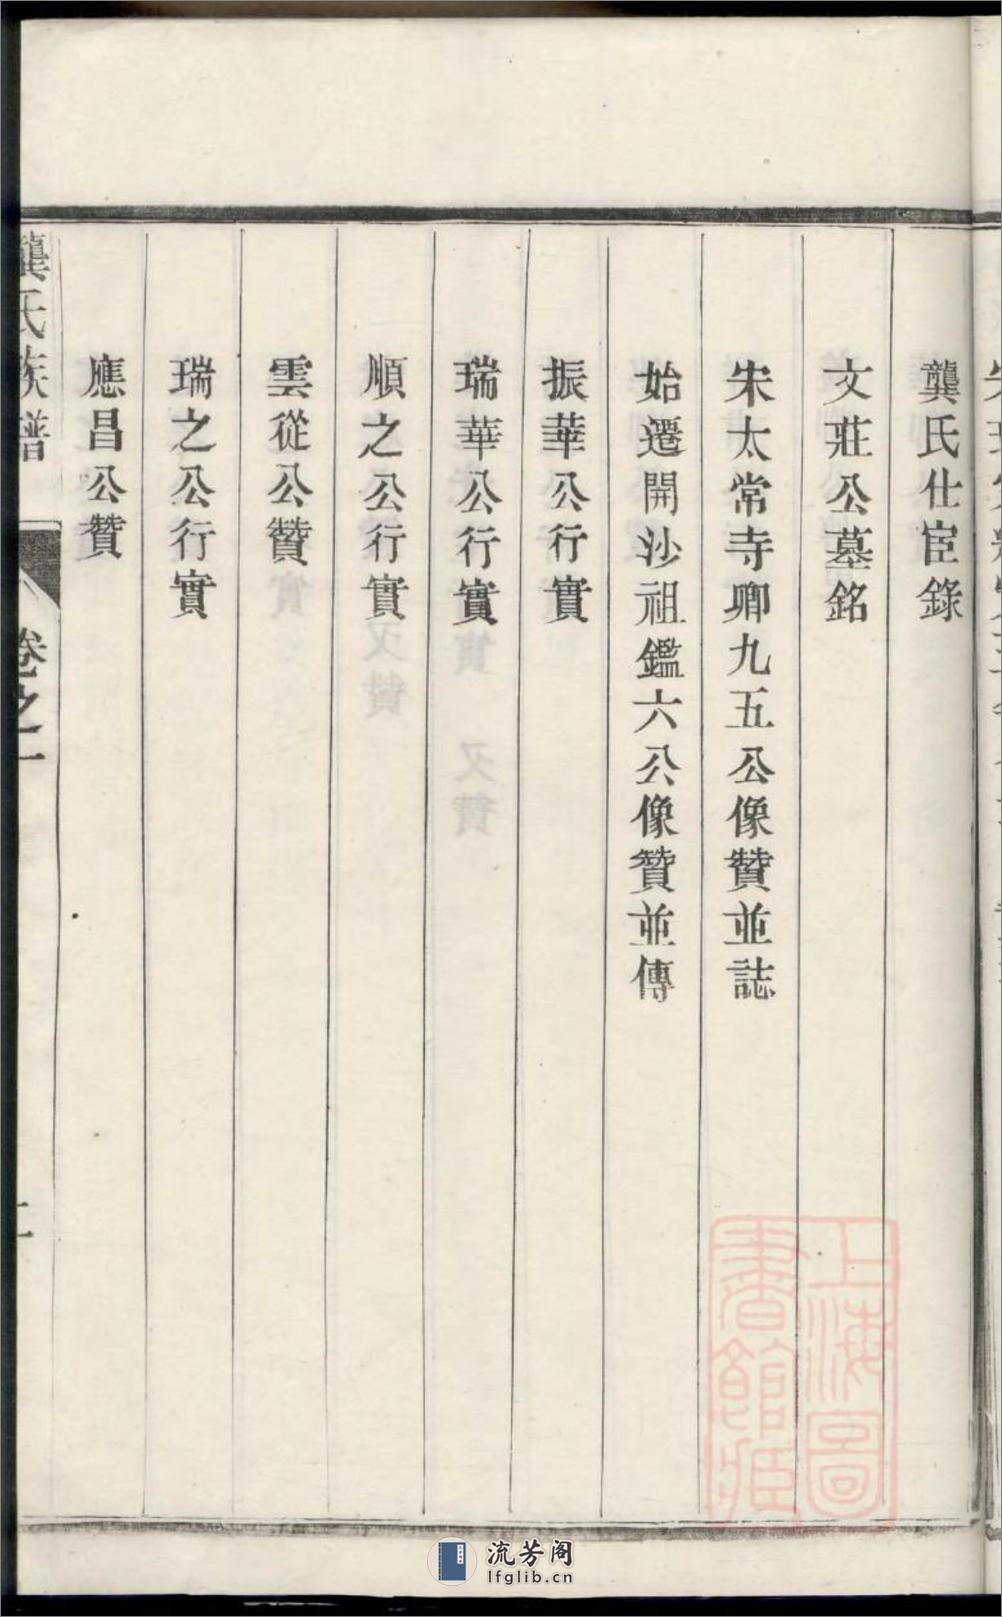 龔氏仕宦錄
文莊公墓銘
宋太常寺卿九五公像贊並誌
始遷開沙祖鑑六公像贊並傳
振華公行實
瑞華公行實
順之公行實
雲從公贊
瑞之公行實
應昌公贊
龔氏族譜
卷之一
上海圖書館藏
流芳阁
lfglib.cn